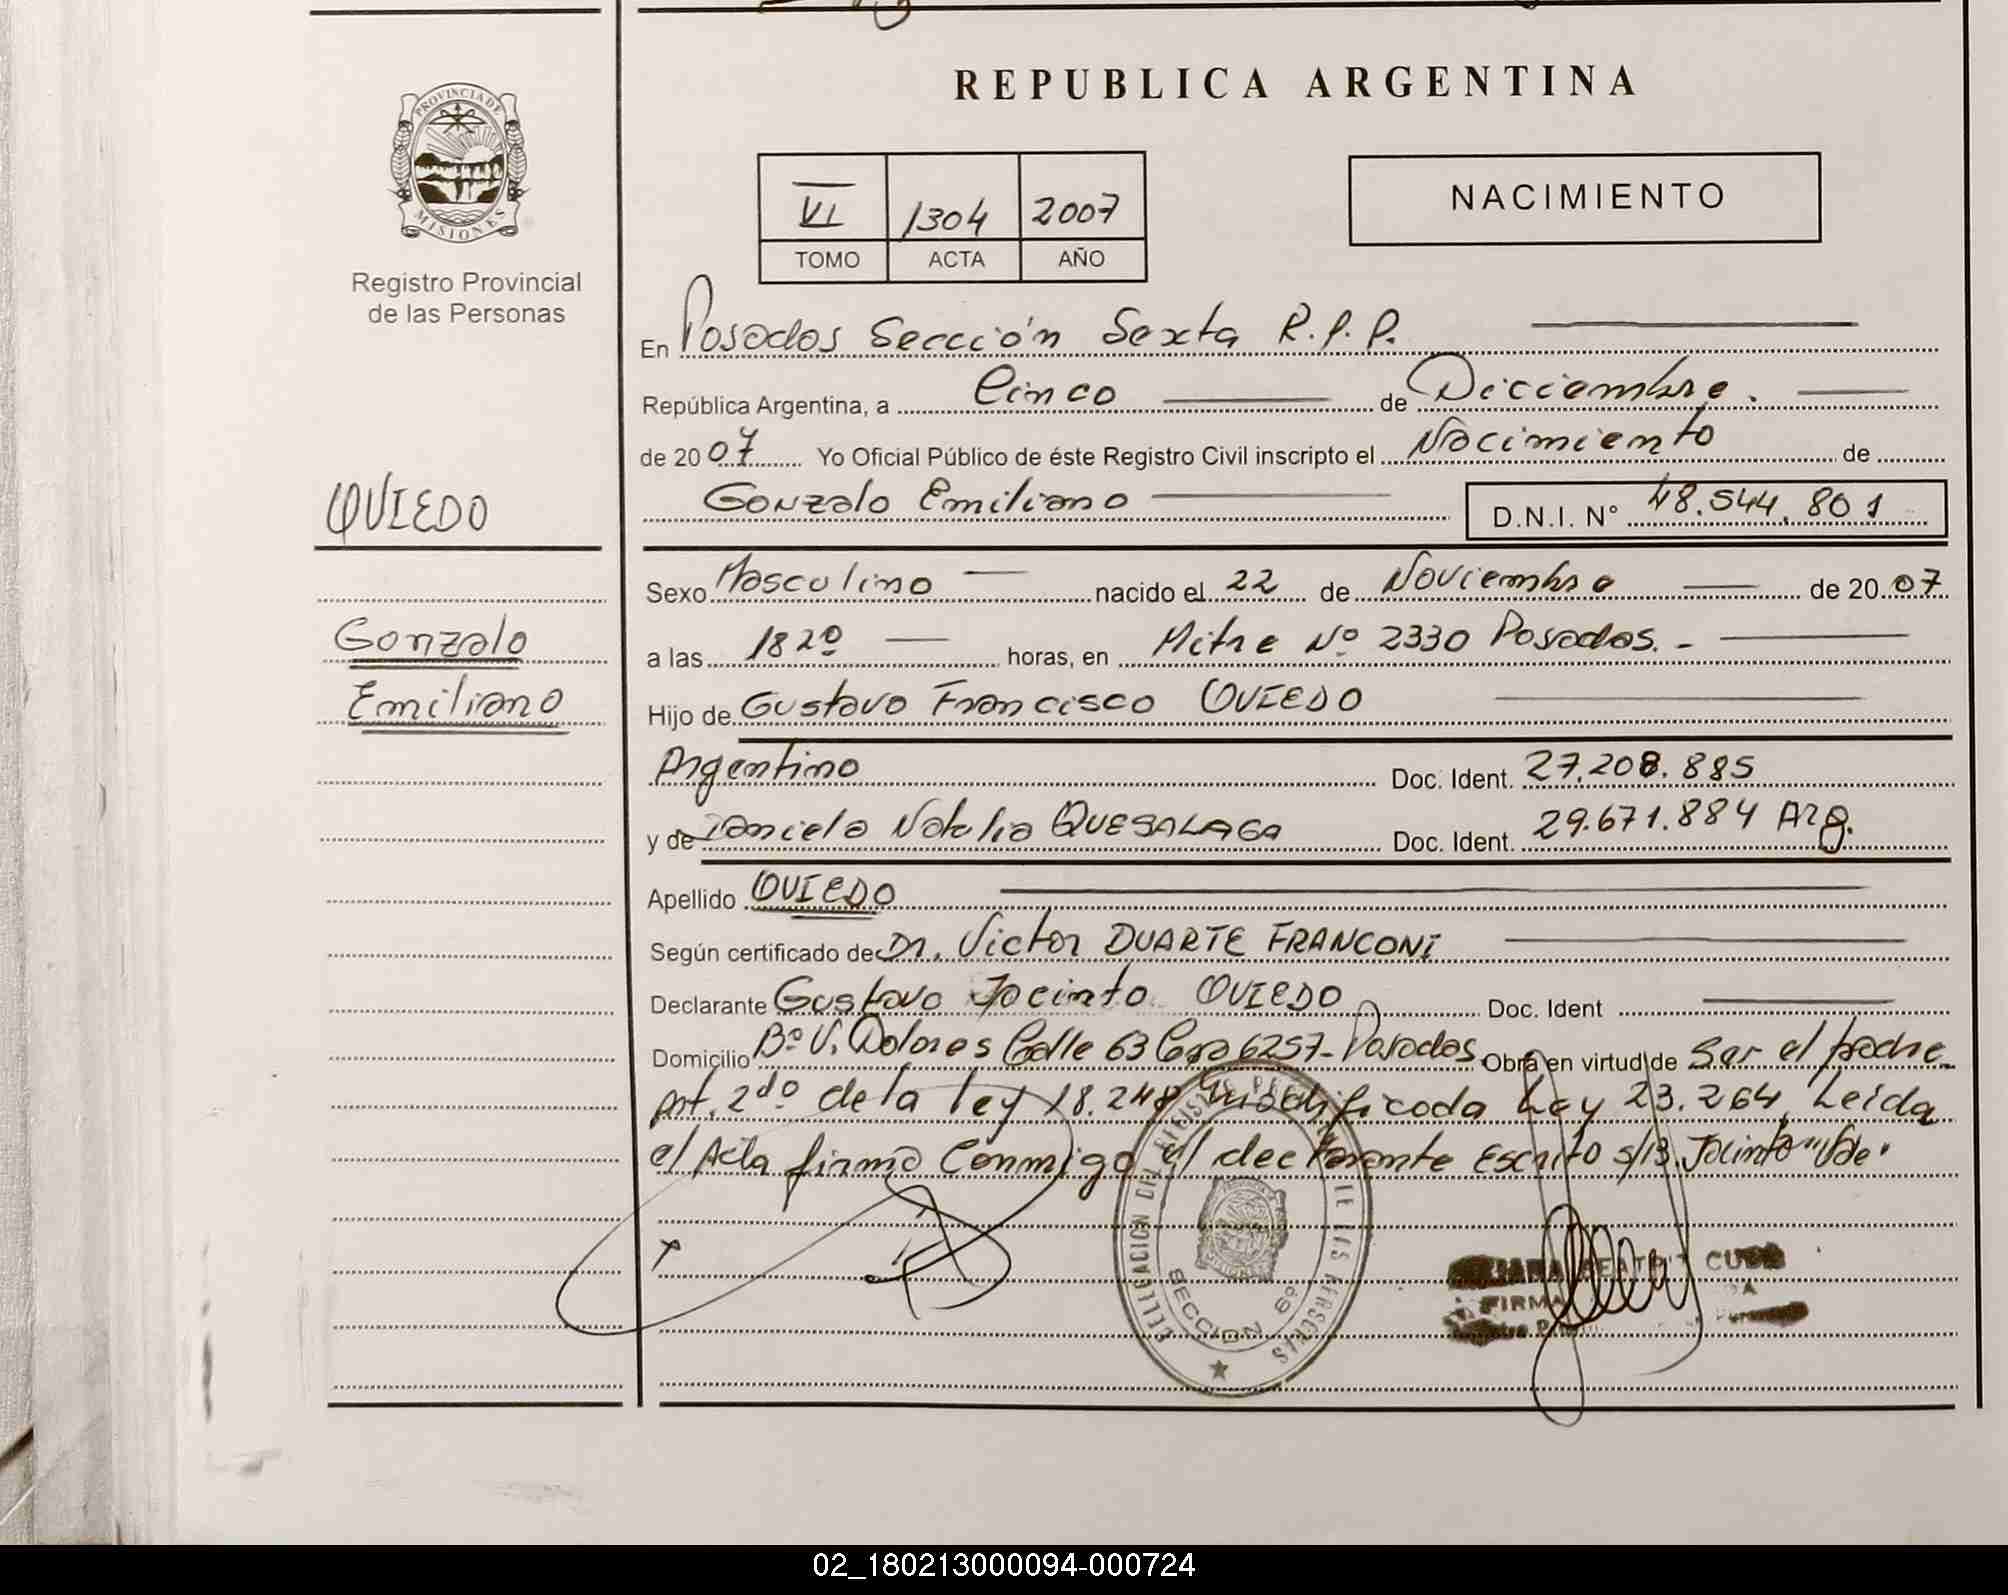 REPUBLICA ARGENTINA
PROVINCIA DE
MISIONES
Registro Provincial
de las Personas
VI 1304 2007
TOMO ACTA AÑO
NACIMIENTO
En Posadas Sección Sexta R.P.P.
República Argentina, a Cinco de Diciembre.
de 2007 Yo Oficial Público de éste Registro Civil inscripto el Nacimiento de
OVIEDO
Gonzalo Emiliano D.N.I. Nº 48.544.801
Sexo Masculino nacido el 22 de Noviembre de 2007
Gonzalo
a las 18 20 horas, en Mitre Nº 2330 Posadas.-
Emiliano
Hijo de Gustavo Francisco OVIEDO
Argentino Doc. Ident. 27.208.885
y de Natalia Doc. Ident. 29.671.884 Arg.
Apellido OVIEDO
Según certificado de Dr. Victor DUARTE FRANCONI
Declarante Gustavo Jacinto OVIEDO Doc. Ident
Domicilio Bº V. Dolores Calle 63 Casa 6257-Posadas Obra en virtud de Ser el padre
Art. 2do de la ley 18.248 Modificada Ley 23.264 Leida
el Acta firmó Conmigo el declarante Escrito s/B. Jacinto "Vale"
DELEGACION DEL REGISTRO DE LAS PERSONAS
SECCION 6º
CUBA
FIRMA
02_180213000094-000724